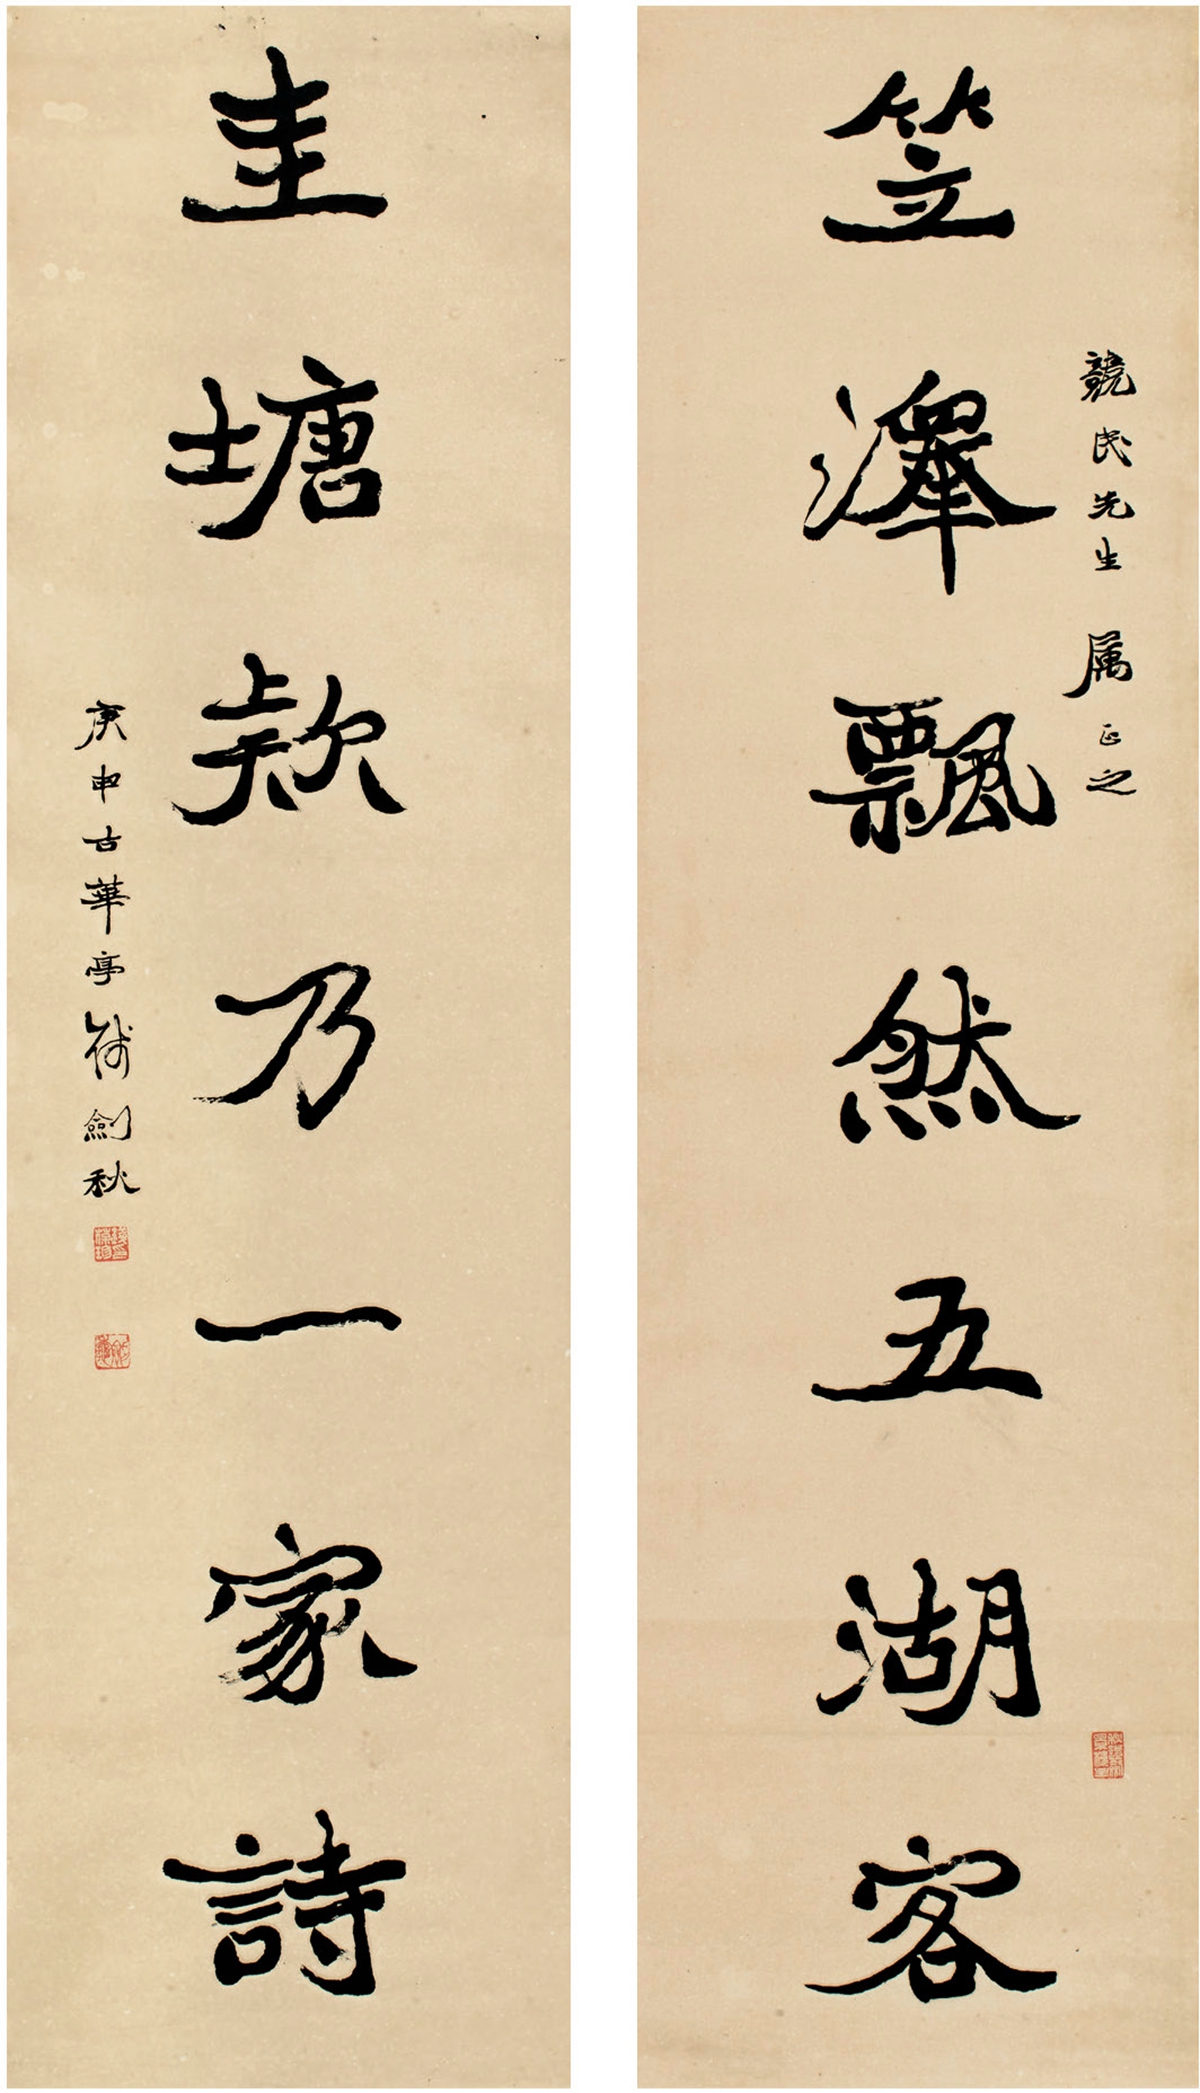 競民先生 属正之
笠澤飄然五湖客
圭塘欵乃一家詩
庚申古華亭錢劍秋